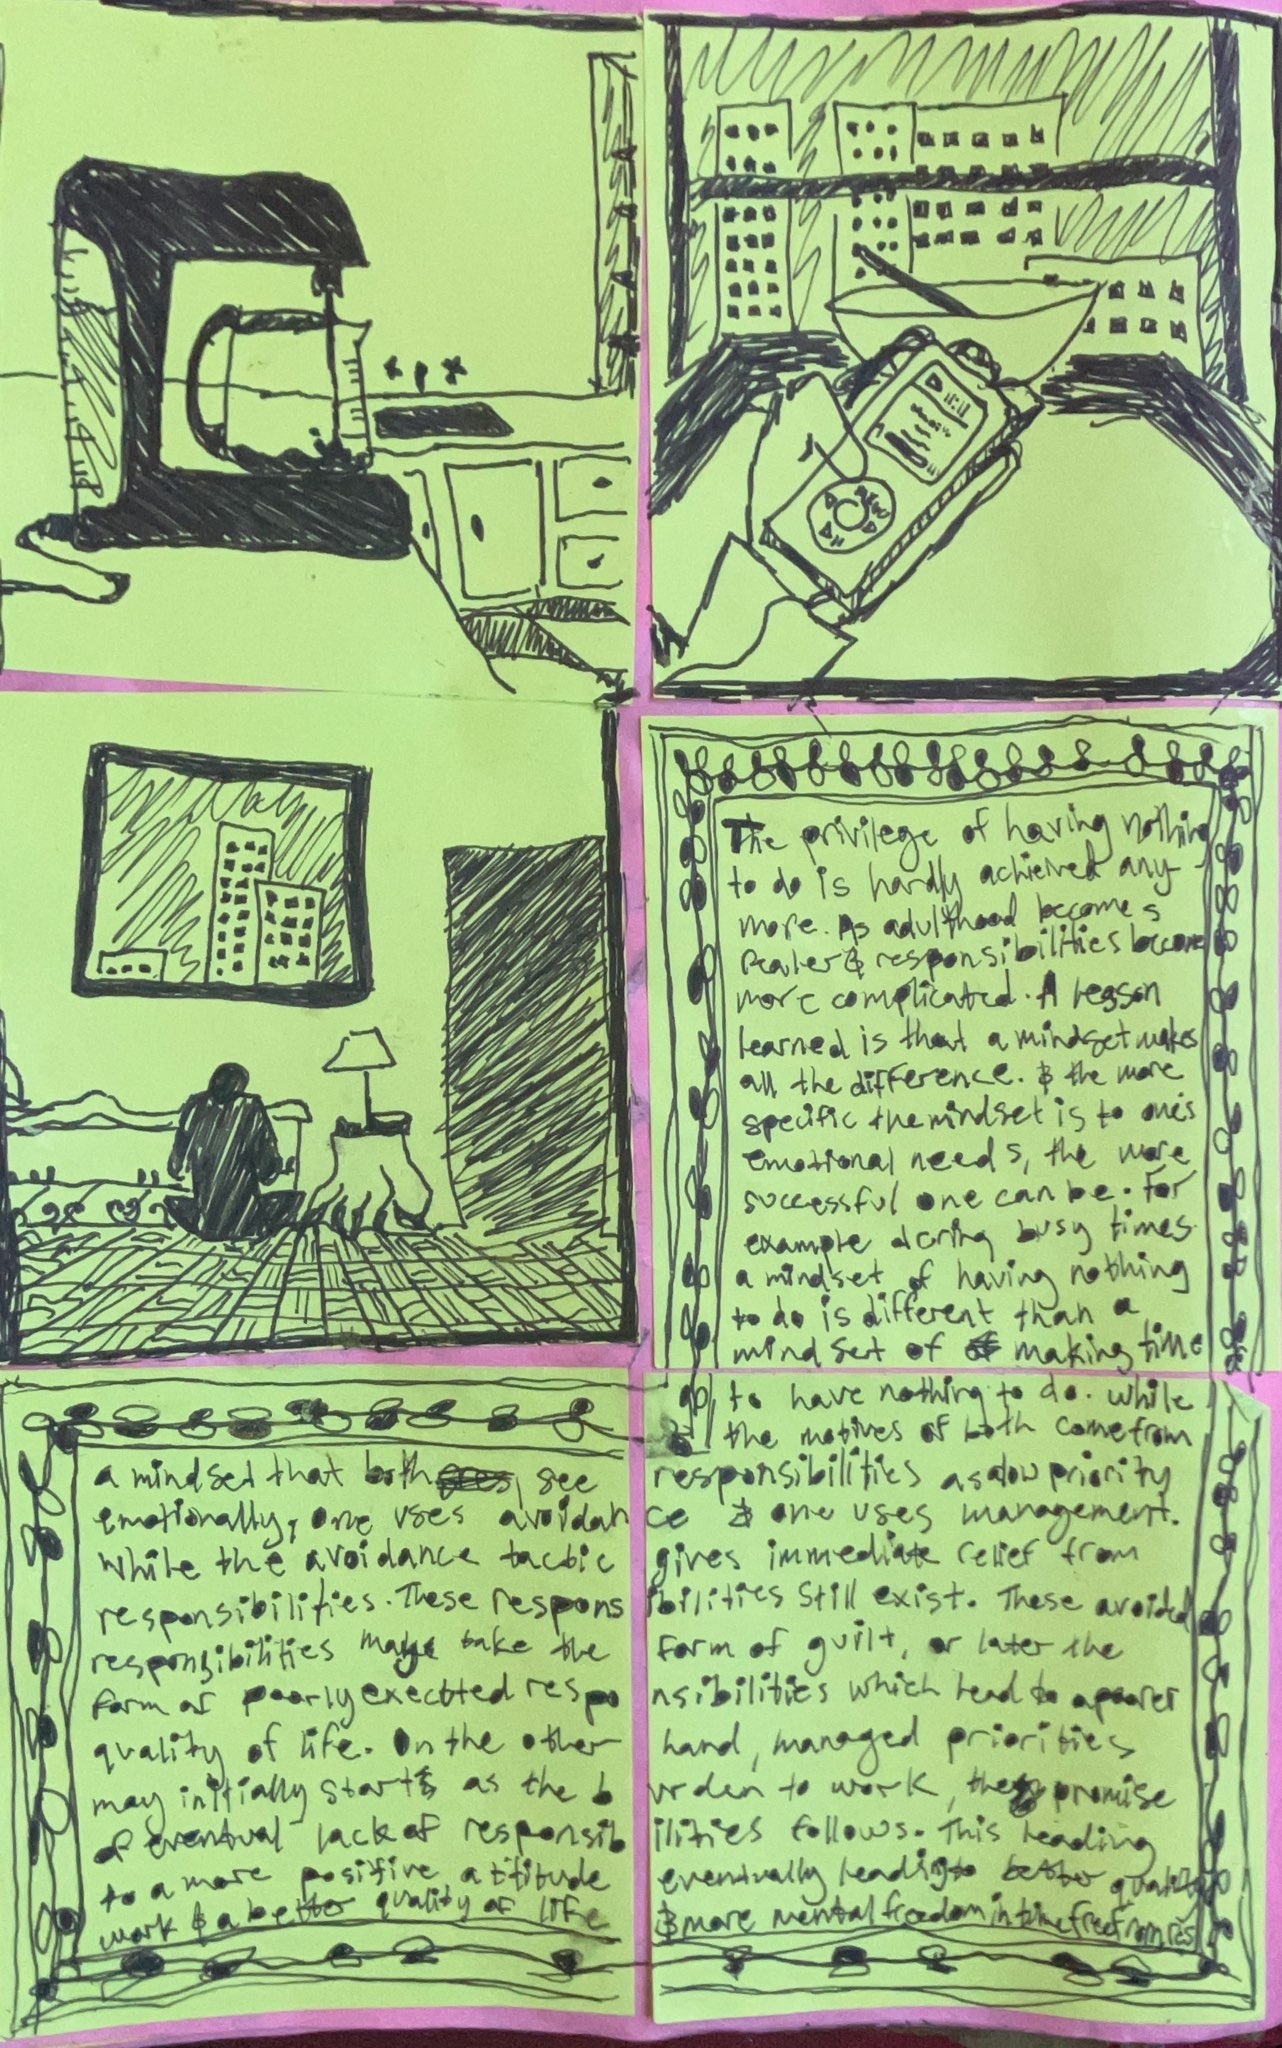 The privilege of having nothing
to do is hardly achieved any
more. As adulthood becomes
realer & responsibilities become
more complicated. A lesson
learned is that a mindset makes
all the difference. & the more
specific the mindset is to one's
emotional needs, the more
successful one can be. For
example during busy times
a mindset of having nothing
to do is different than a
mindset of making time
to have nothing to do. while
the motives of both come from
a mindset that both see responsibilities as a low priority
emotionally, one uses avoidance & one uses management.
While the avoidance tactic gives immediate relief from
responsibilities. These responsibilities still exist. These avoided
responsibilities may take the form of guilt, or later the
form of poorly executed responsibilities which lead to a poorer
quality of life. On the other hand, managed priorities
may initially start as the burden to work, the promise
of eventual lack of responsibilities follows. This leading
to a more positive attitude eventually leading to better quality
work & a better quality of life & more mental freedom in time free from res